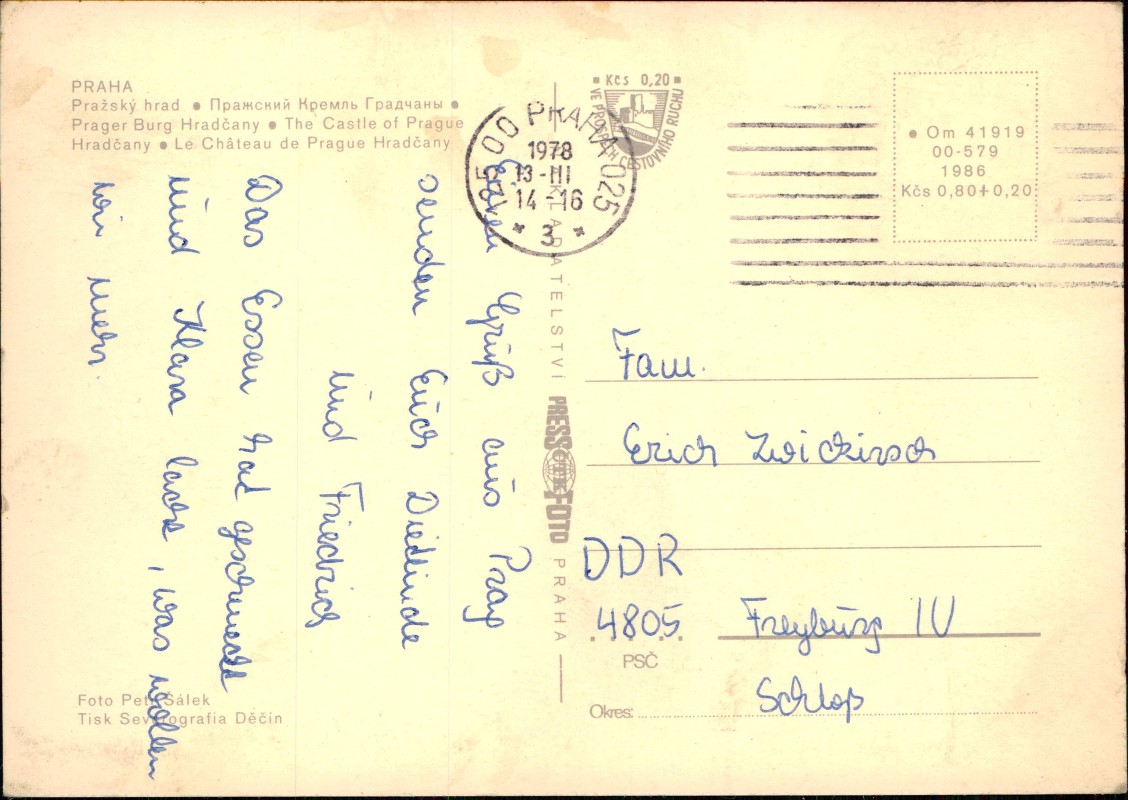 PRAHA
Pražský hrad ● Пражский Кремль Градчаны ●
Prager Burg Hradčany ● The Castle of Prague
Hradčany ● Le Château de Prague Hradčany
Einen Gruß aus Prag
senden Euch Dietlinde
und Friedrich
Das Essen hat geschmeckt
und Klara lacht, was wollen
wir mehr.
Foto Petr Šálek
Tisk Severografia Děčín
PRAHA 025
1978
13-III
14-16
* 3 *
Kčs 0,20
CESTOVNÍHO RUCHU
● Om 41919
00-579
1986
Kčs 0,80+0,20
PRESSFOTO PRAHA
Fam.
Erich
DDR
4805 Freyburg IU
PSČ
Schloß
Okres: